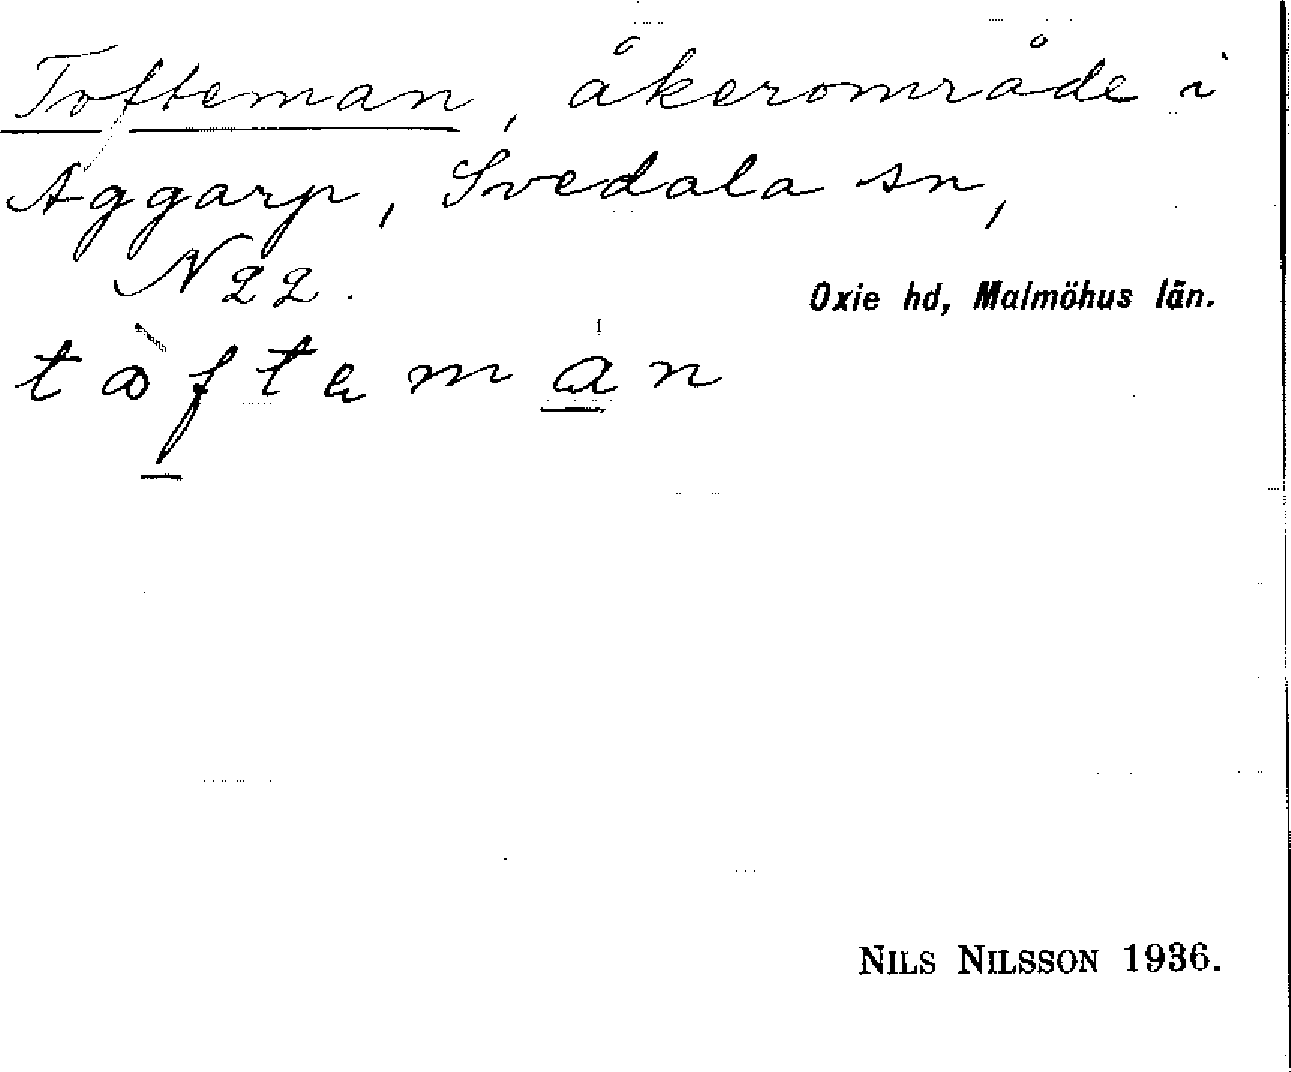 Tofteman, åkerområde i
Aggarp, Svedala sn,
N22.
Oxie hd, Malmöhus län.
tåftəman
NILS NILSSON 1936.